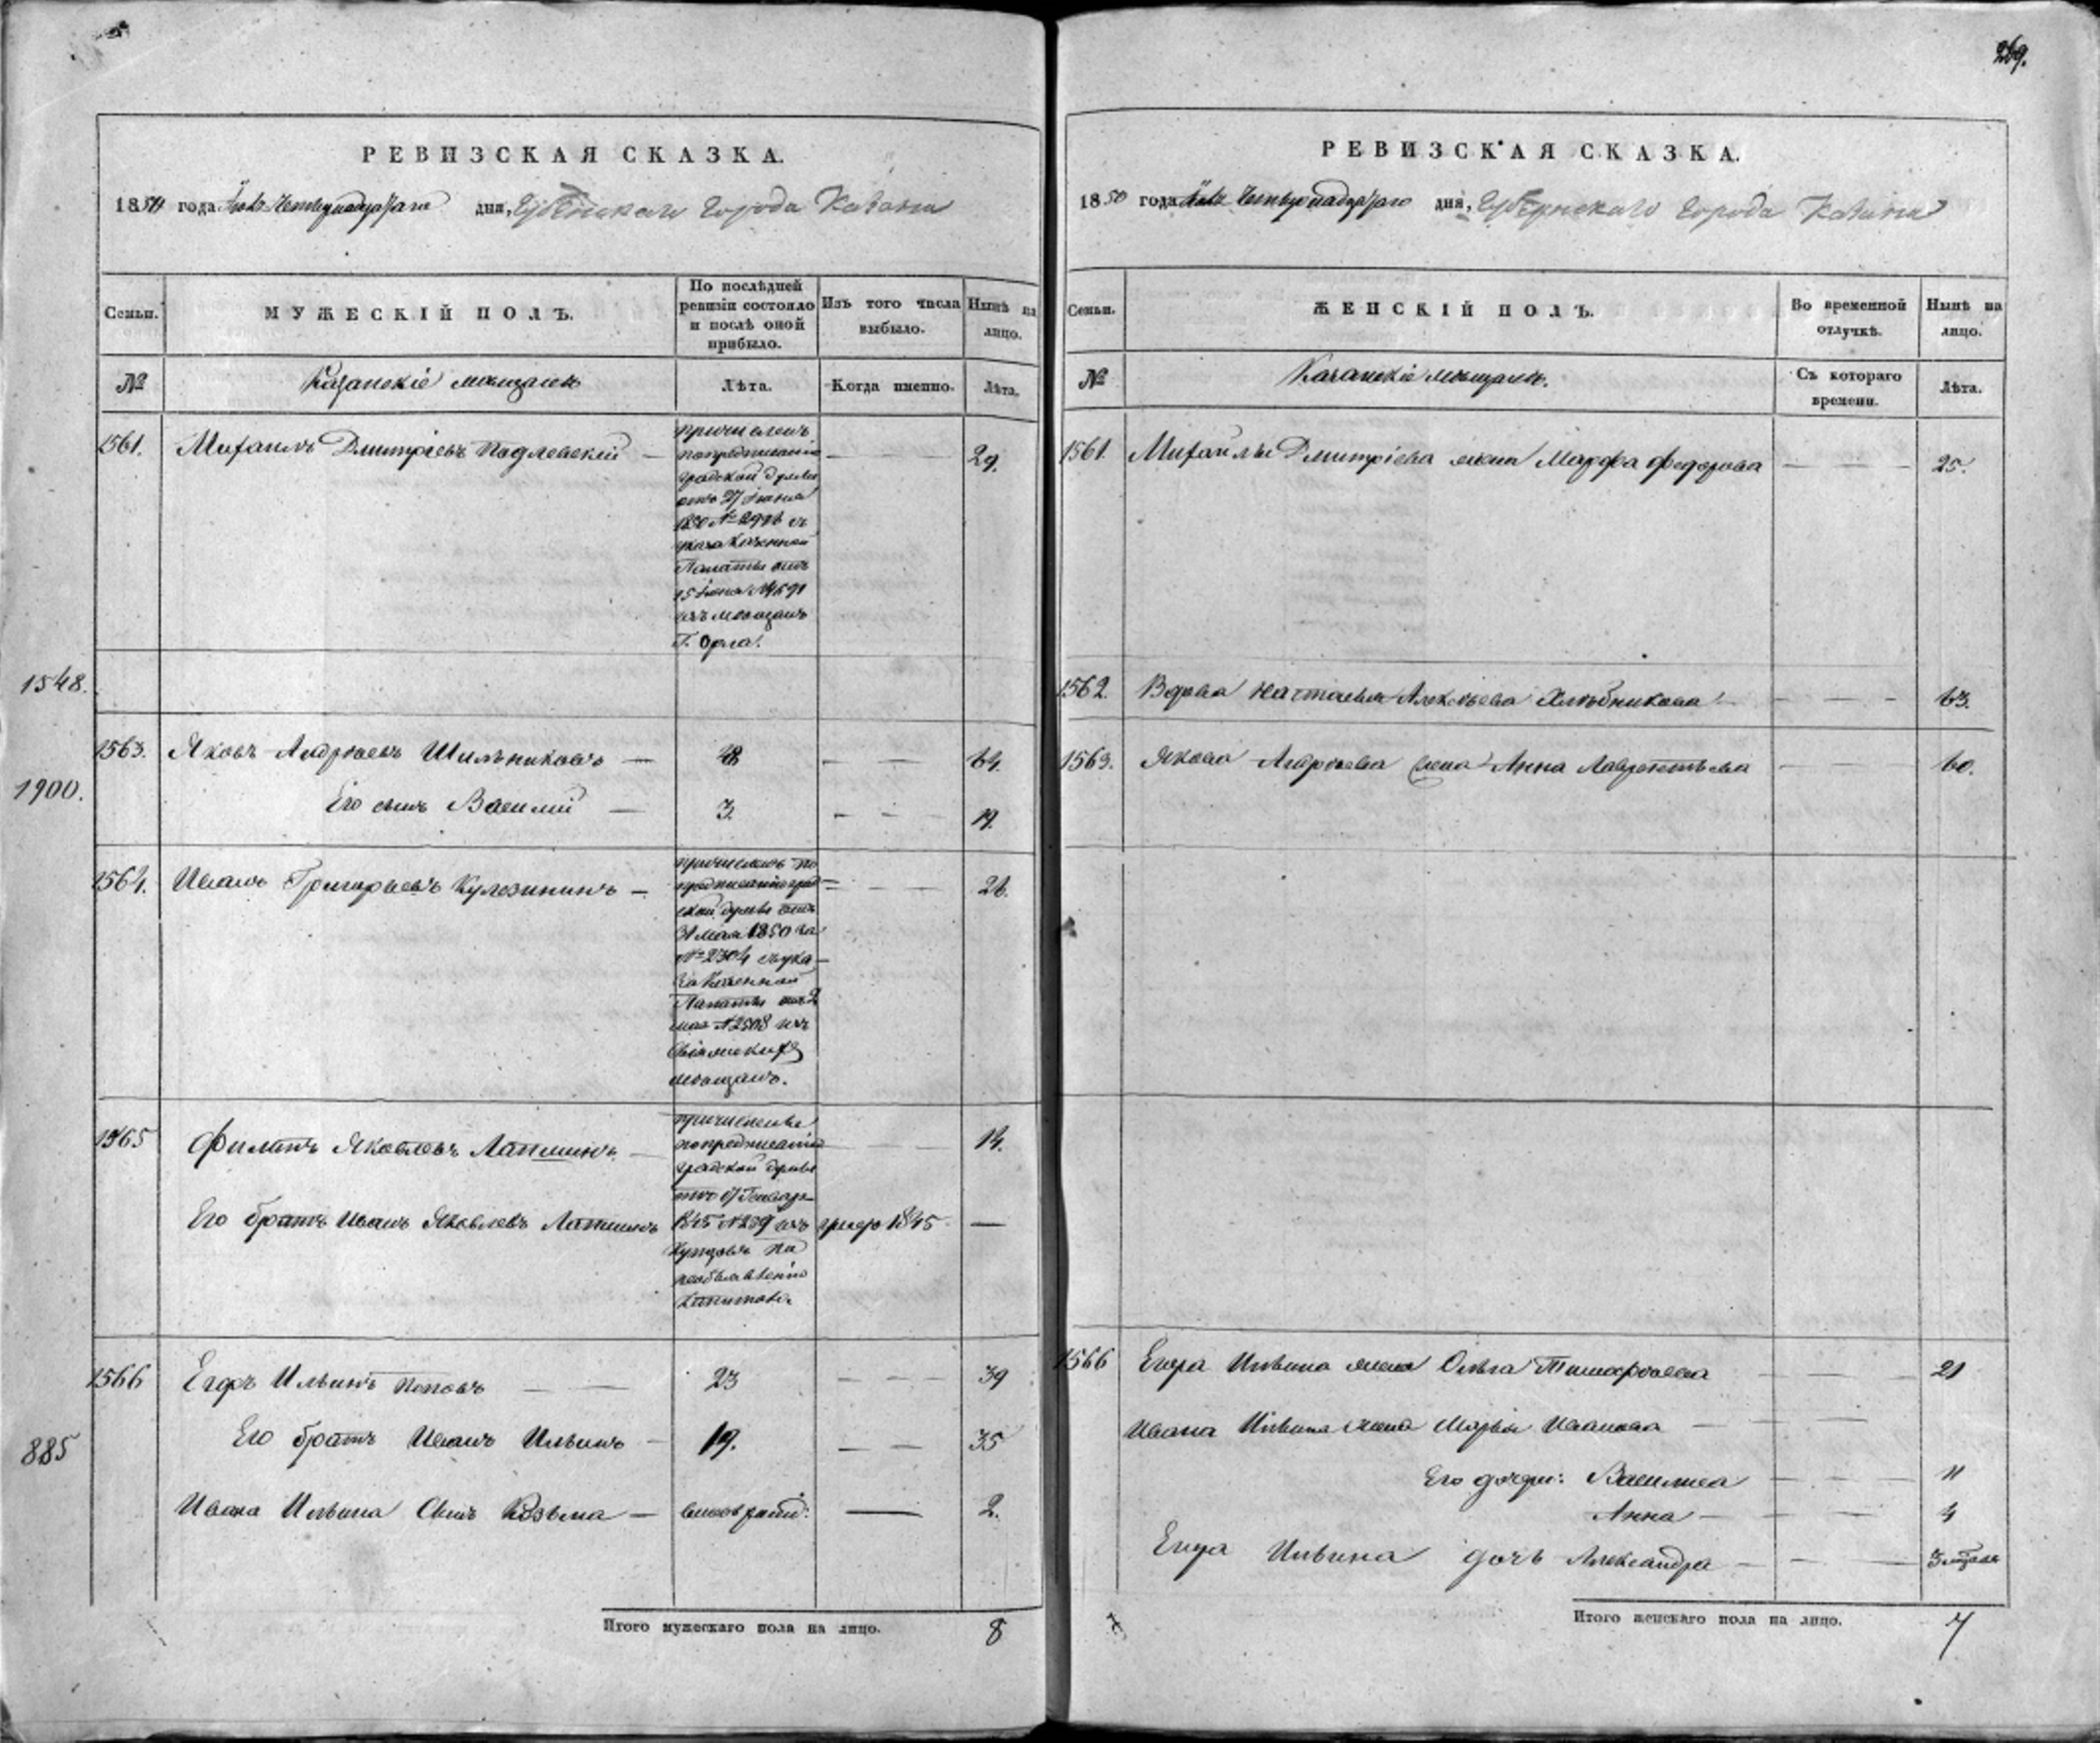 269.
РЕВИЗСКАЯ СКАЗКА.
1850 года дня, Губернскаго Города Казани
Семьи.
МУЖЕСКІЙ ПОЛЪ.
По послѣдней
ревизіи состояло
и послѣ оной
прибыло.
Изъ того числа
выбыло.
Нынѣ на
лицо.
№
Казанскіе мѣщане
Лѣта.
Когда именно.
Лѣта.
1561. Михаилъ Дмитріевъ Подлевскій — 29.
причисленъ
по предписанію
градской думы
отъ 27 Іюня
1850 №
указа Казенной
Палаты отъ
15 Іюня
изъ мѣщанъ
Г. Орла.
1548.
1563. Яковъ Андреевъ Шильниковъ — 48 — — 64.
1900.
Его сынъ Василій — 3. — — — 19.
1564. Иванъ Григорьевъ — — — 26.
причисленъ по
предписанію град
ской думы отъ
31 мая 1850 за
№ 2304 съ ука
за Казенной
Палаты
мая № 2508 изъ
Свіяжскихъ
мѣщанъ.
1565 Филипъ Яковлевъ Лапшинъ — 14.
Его братъ Иванъ Яковлевъ Лапшинъ 1845 —
причислены
по предписанію
градской думы
Генваря
1845 № 239 изъ
Купцовъ по
необъявленію
капитала.
1566 Егоръ Ильинъ Поповъ — — 23 — — — 39
885
Его братъ Иванъ Ильинъ — 19. — — 35
Ивана Ильина Сынъ Козьма — — 2.
Итого мужескаго пола на лицо. 8
РЕВИЗСКАЯ СКАЗКА.
1850 года дня, Губернскаго Города Казани
Семьи.
ЖЕНСКІЙ ПОЛЪ.
Во временной
отлучкѣ.
Нынѣ на
лицо.
№
Казанскіе мѣщане.
Съ котораго
времени.
Лѣта.
1561. Михаилы Дмитріева жена Марфа Федорова — — — 25.
1562. Вдова Настасья Алексѣева Хлѣбникова — — — 63.
1563. Якова Андреева жена Анна Лаврентьева — — — 60.
1566 Егора Ильина жена Ольга Тимофеева — — — 21
Ивана Ильина жена Марья Иванова — — —
Его дочери: Василиса — — — 11
Анна — — — 4
Егора Ильина дочь Александра — — —
Итого женскаго пола на лицо. 7